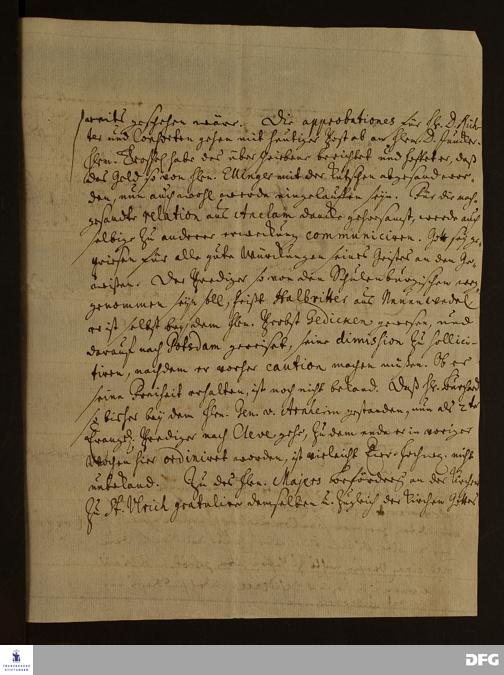 bereits geschehen wäre. Die approbationes für H. D. Rich-
ter und Consorten gehen mit heutiger Post ab an Hrn. D. Juncker.
Hrn. Grosch habe des überschriebene berichtet und hoffet er, daß
das Geld so von Hrn. Ellinger mit der Kutschen abgesand wor-
den, nun auch wohl werde eingelauffen seyn. Für die nach-
gesandte relation aus Anclam dancke gehorsamst, werde auch
selbige zu anderer erweckung communiciren. Gott sey ge-
priesen für alle gute Würckungen seines Geistes an den Ge-
meinden. Der Prediger so von den Schulenburgischen weg-
genommen seyn soll, heist Halbritter aus
er ist selbst bey dem Hrn. Probst Gedicken gewesen, und
darauf nach Potsdam gereiset, seine dimission zu sollici-
tiren, nachdem er vorher caution machen müßen. Ob er
seine Freiheit erhalten, ist noch nicht bekand. Daß Hr.
so bisher bey dem Hrn. Gen. v. gestanden, nun als 2ter
Evangel. Prediger nach Cleve gehe, zu dem ende er in voriger
Wochen hier ordiniret worden, ist vielleicht Euer Hochw. nicht
unbekand. Zu des Hrn. Majors beförderung an der Kirchen
zu St. Ulrich gratulire demselben u. zugleich der Kirchen Gottes
FRANCKESCHE
STIFTUNGEN
DFG